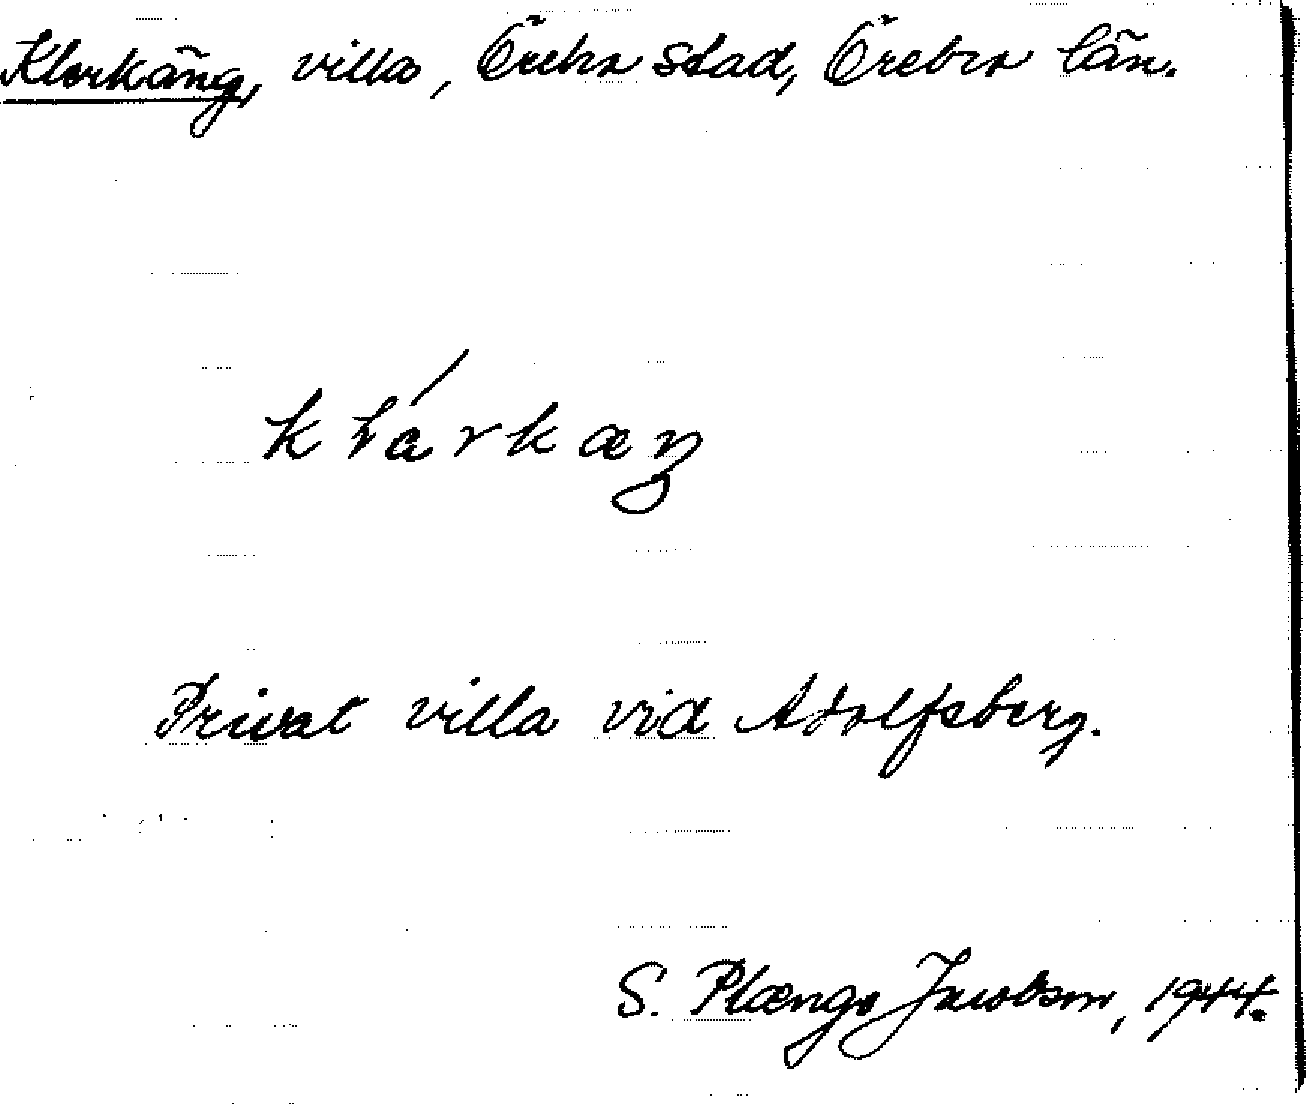 Klerkäng, villa, Örebro stad, Örebro län.
Privat villa vid Adolfsberg.
S. Plænge Jacobson, 1944.